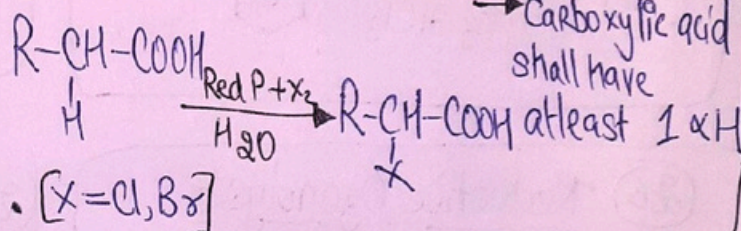 → Carboxylic acid
shall have
atleast 1 αH
R-CH-COOH
H
Red P+X₂
H₂O
R-CH-COOH
X
. [X=Cl,Br]